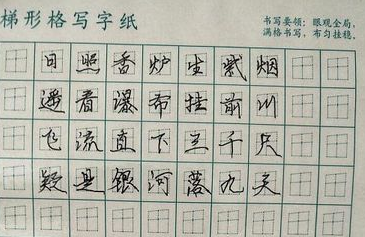 梯形格写字纸
书写要领：眼观全局，
满格书写，布匀挂稳。
日照香炉生紫烟
遥看瀑布挂前川
飞流直下三千尺
疑是银河落九天